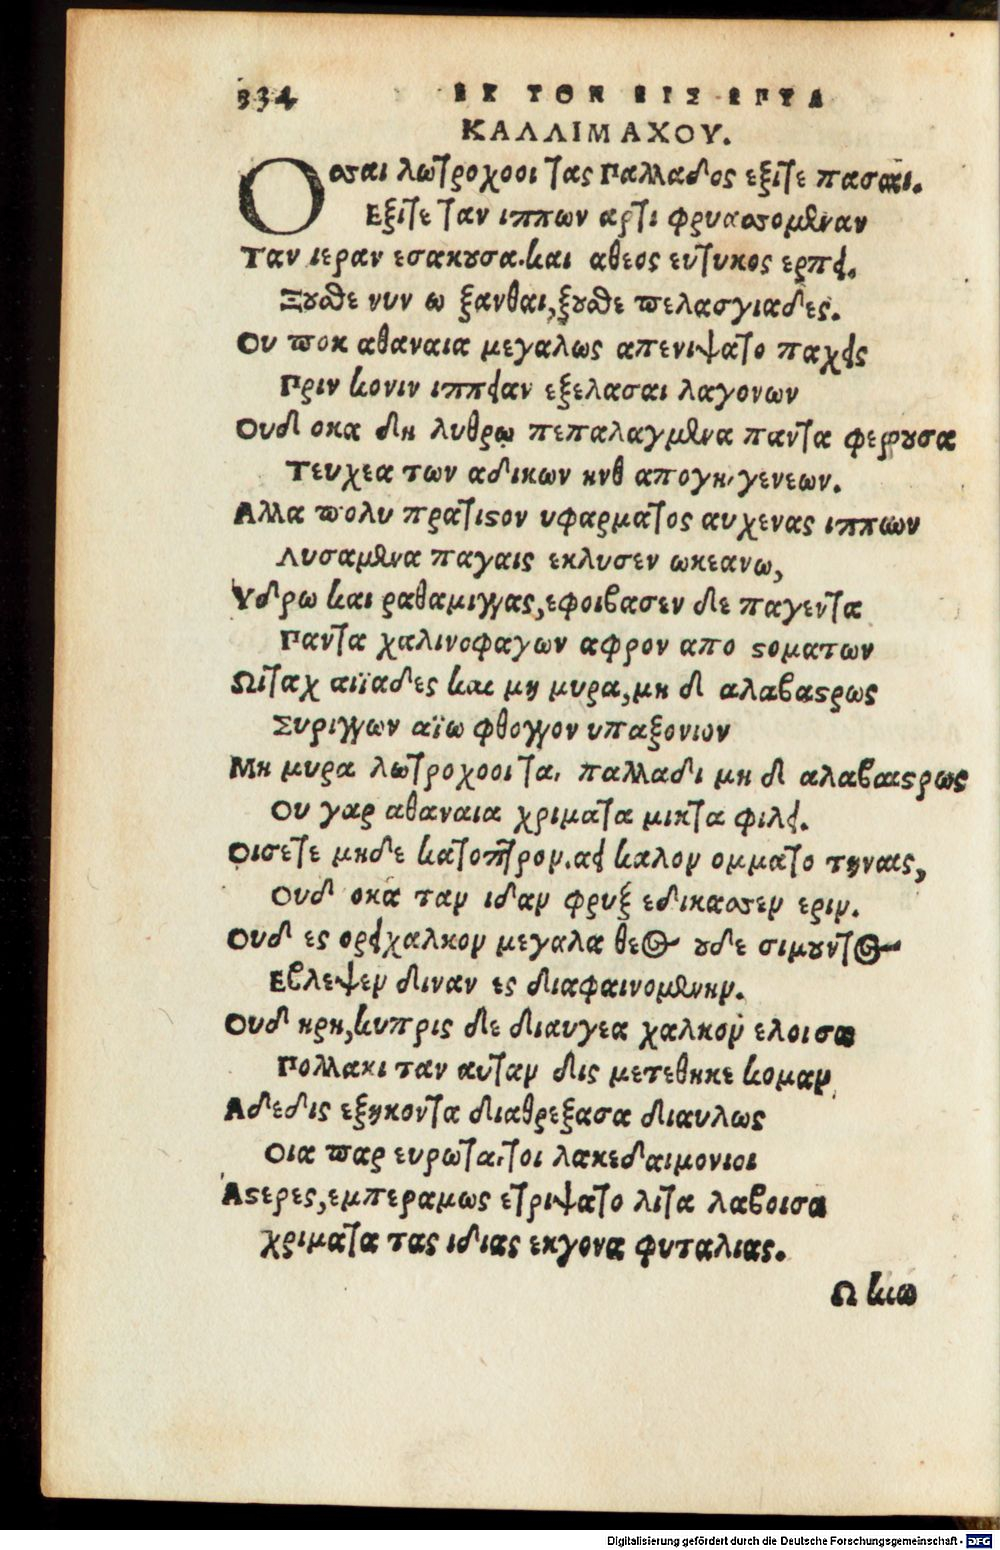 334 ΕΚ ΤΩΝ ΕΙΣ ΕΡΓΑ
ΚΑΛΛΙΜΑΧΟΥ.
Οσσαι λωτροχοοι τας Παλλαδος εξιτε πασαι.
Εξιτε ταν ιππων αρτι φρυασσομεναν
Ταν ιεραν εσακουσα. και αθεος ευτυκος ερπει.
Ξουσθε νυν ω ξανθαι, ξουσθε πελασγιαδες.
Ου ποκ αθαναια μεγαλως απενιψατο παχεις
Πριν κονιν ιππειαν εξελασαι λαγονων
Ουδ οκα δη λυθρω πεπαλαγμενα παντα φερουσα
Τευχεα των αδικων ηνθ απογη, γενεων.
Αλλα πολυ πρατιστον υφαρματος αυχενας ιππων
Λυσαμενα παγαις εκλυσεν ωκεανω,
Υδρω και ραθαμιγγας, εφοιβασεν δε παγεντα
Παντα χαλινοφαγων αφρον απο στοματων
Ωιταχ αιϊαδες και μη μυρα, μη δ αλαβαστρως
Συριγγων αϊω φθογγον υπαξονιον
Μη μυρα λωτροχοοι τα, παλλαδι μη δ αλαβαστρως
Ου γαρ αθαναια χριματα μικτα φιλει.
Οισετε μηδε κατοπτρον. αει καλον ομματο τηνας,
Ουδ οκα ταν ιδαν φρυξ εδικασσεν εριν.
Ουδ ες ορειχαλκον μεγαλα θεος ουδε σιμουντος
Εβλεψεν διναν ες διαφαινομενην.
Ουδ ηρη, κυπρις δε διαυγεα χαλκον ελοισα
Πολλακι ταν αυταν δις μετεθηκε κομαν,
Αδεδις εξηκοντα διαθρεξασα διαυλως
Οια παρ ευρωτα, τοι λακεδαιμονιοι
Αστερες, εμπεραμως ετριψατο λιτα λαβοισα
χριματα τας ιδιας εκγονα φυταλιας.
Ω κω
Digitalisierung gefördert durch die Deutsche Forschungsgemeinschaft - DFG